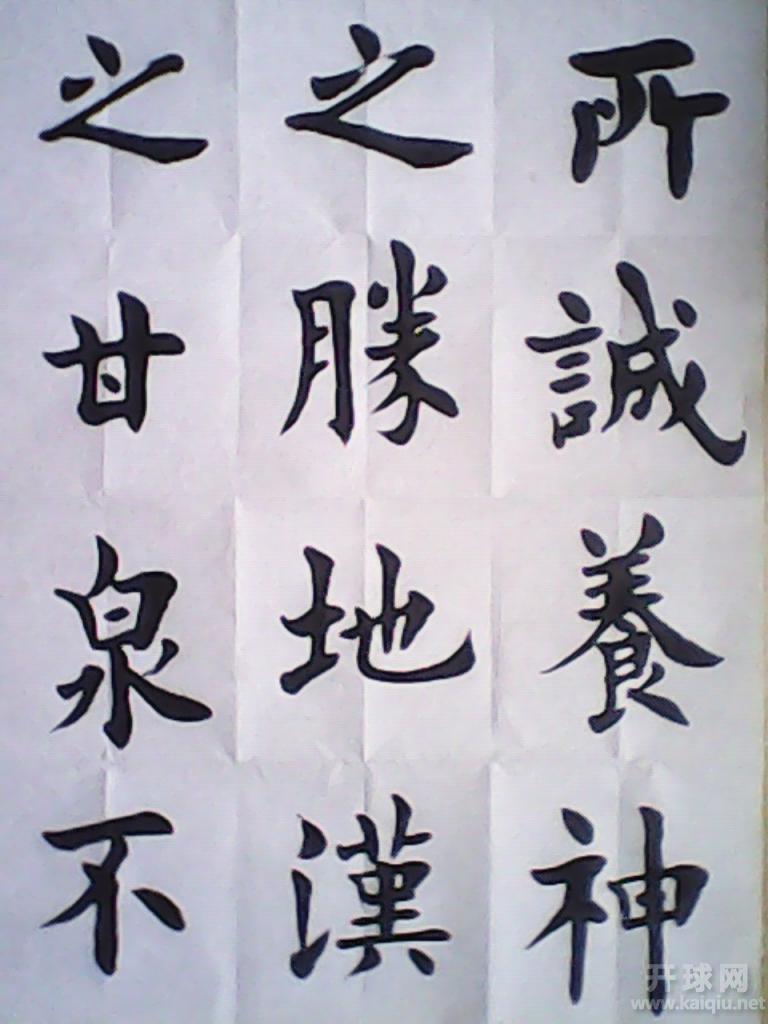 所誠養神
之勝地漢
之甘泉不
开球网
www.kaiqiu.net